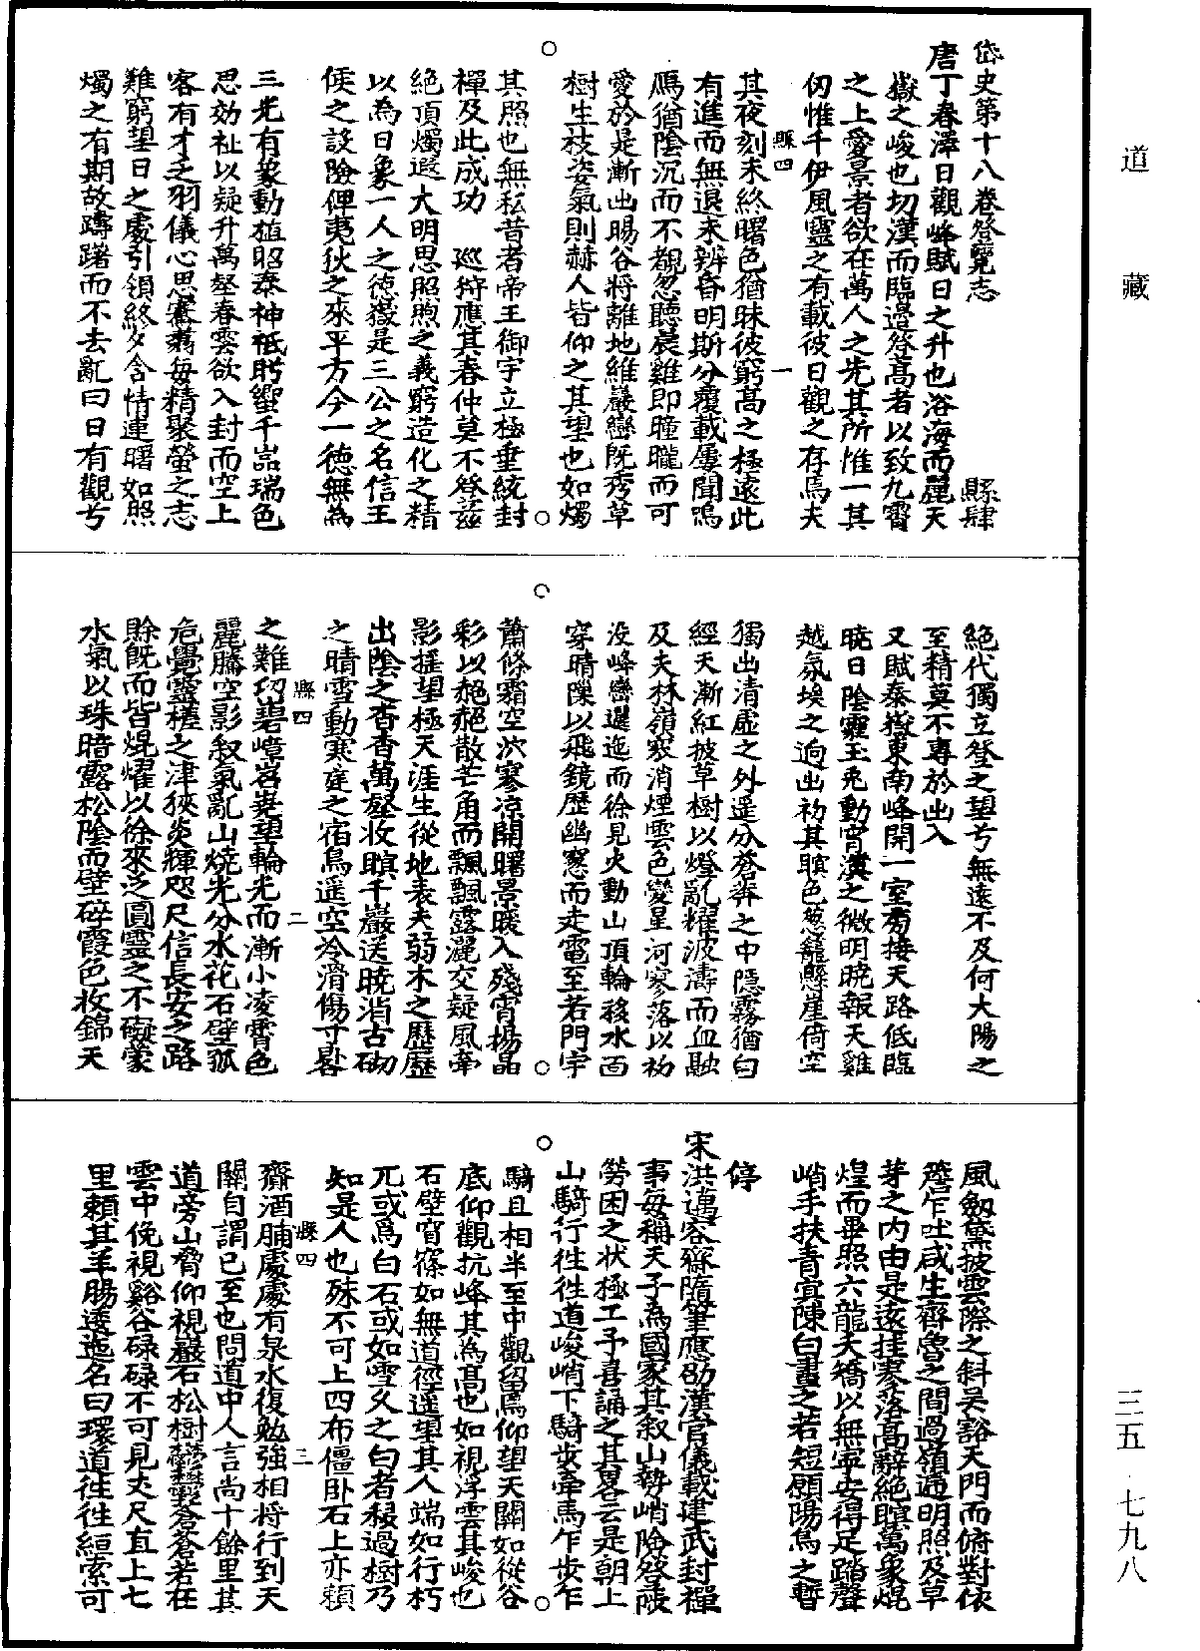 道藏
三五·七九八
岱史第十八卷登覽志 縣肆
唐丁春澤日觀峰賦日之升也浴海而麗天
嶽之峻也切漢而臨邊登髙者以致九霄
之上愛景者欲在萬人之先其所惟一其
仞惟千伊風靈之有載彼日觀之存焉夫
縣四 一
其夜刻未終曙色猶昧彼窮髙之極遠此
有進而無退未辨昏明斯分覆載屢聞鳴
鴈猶陰沉而不覩忽聽晨雞即曈曨而可
愛於是漸出暘谷將離地維巖巒旣秀草
樹生枝姿氣則赫人皆仰之其望也如燭
其照也無私昔者帝王御宇立極垂統封
禪及此成功 巡狩應其春仲莫不登兹
絶頂燭遐大明思照煦之義窮造化之精
以為日象一人之德嶽是三公之名信王
侯之設險俾夷狄之來平方今一德無為
三光有象動植昭泰神祗肹蠁千嵓瑞色
思効祉以疑升萬壑春雲欲入封而空上
客有才乏羽儀心思騫翥每精聚螢之志
難窮望日之處引領終夕含情連曙如照
燭之有期故躊躇而不去亂曰日有觀兮
絶代獨立登之望兮無遠不及何大陽之
至精莫不專於出入
又賦泰嶽東南峰開一室旁接天路低臨
曉日陰霾玉兎動宵漢之微明曉報天雞
越氛埃之迥出初其瞑色葱蘢懸崖倚空
獨出清虛之外遥分蒼莽之中隱霧猶曰
經天漸紅披草樹以燈亂耀波濤而血融
及夫林嶺寂消煙雲色變星河寥落以初
没峰巒邐迤而徐見火動山頂輪移水面
穿晴隙以飛鏡歷幽窓而走電至若門宇
蕭條霜空泬寥凉開曙景暖入殘宵揚晶
彩以赩赩散芒角而飄飄露灑交疑風牽
影摇望極天涯生從地表夫弱木之歷歷
出陰之杳杳萬壑收瞑千巖送曉消古砌
之晴雪動寒庭之宿鳥遥空冷滑傷寸晷
縣四 二
之難切碧嶂岧嶤望輪光而漸小凌霄色
麗騰空影叙氣亂山燒光分水花石壁孤
危覺靈槎之津狹炎輝咫尺信長安之路
賖旣而皆焜燿以徐來乏圓靈之不礙蒙
水氣以珠暗露松陰而壁碎霞色妝錦天
風劒黛披雲際之斜吴谿天門而俯對依
𨺗乍吐咸生齊魯之間過嶺遍明照及草
芽之内由是遠挂寥落髙辭絶瞑萬象焜
煌而畢照六龍夭矯以無寧安得足踏聲
峭手扶青冥陳曰晝之若短願陽烏之暫
停
宋洪邁容齋隨筆應劭漢官儀載建武封禪
事每稱天子為國家其叙山勢峭險登陟
勞困之狀極工予喜誦之其畧云是朝上
山騎行徃徃道峻峭下騎步牽馬乍步乍
騎且相半至中觀留馬仰望天關如從谷
底仰觀抗峰其為髙也如視浮雲其峻也
石壁窅窱如無道徑遥望其人端如行朽
兀或爲白石或如雪久之白者移過樹乃
知是人也殊不可上四布僵卧石上亦頼
縣四 三
齎酒脯處處有泉水復勉強相將行到天
關自謂已至也問道中人言尚十餘里其
道旁山脅仰視巖石松樹鬱鬱蒼蒼若在
雲中俛視谿谷碌碌不可見丈尺直上七
里頼其羊腸逶迤名曰環道徃徃絙索可